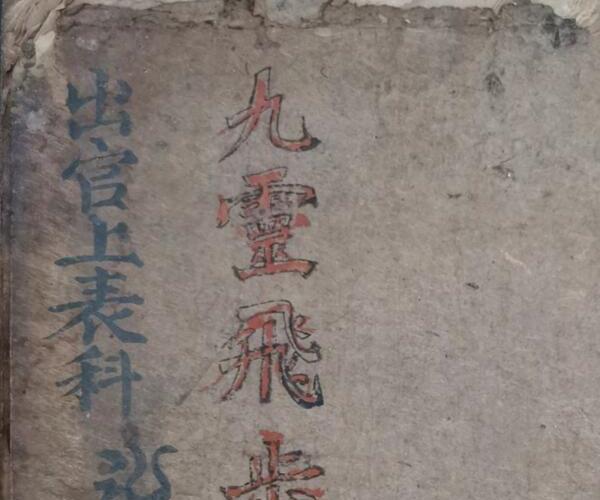 九靈飛步
出官上表科